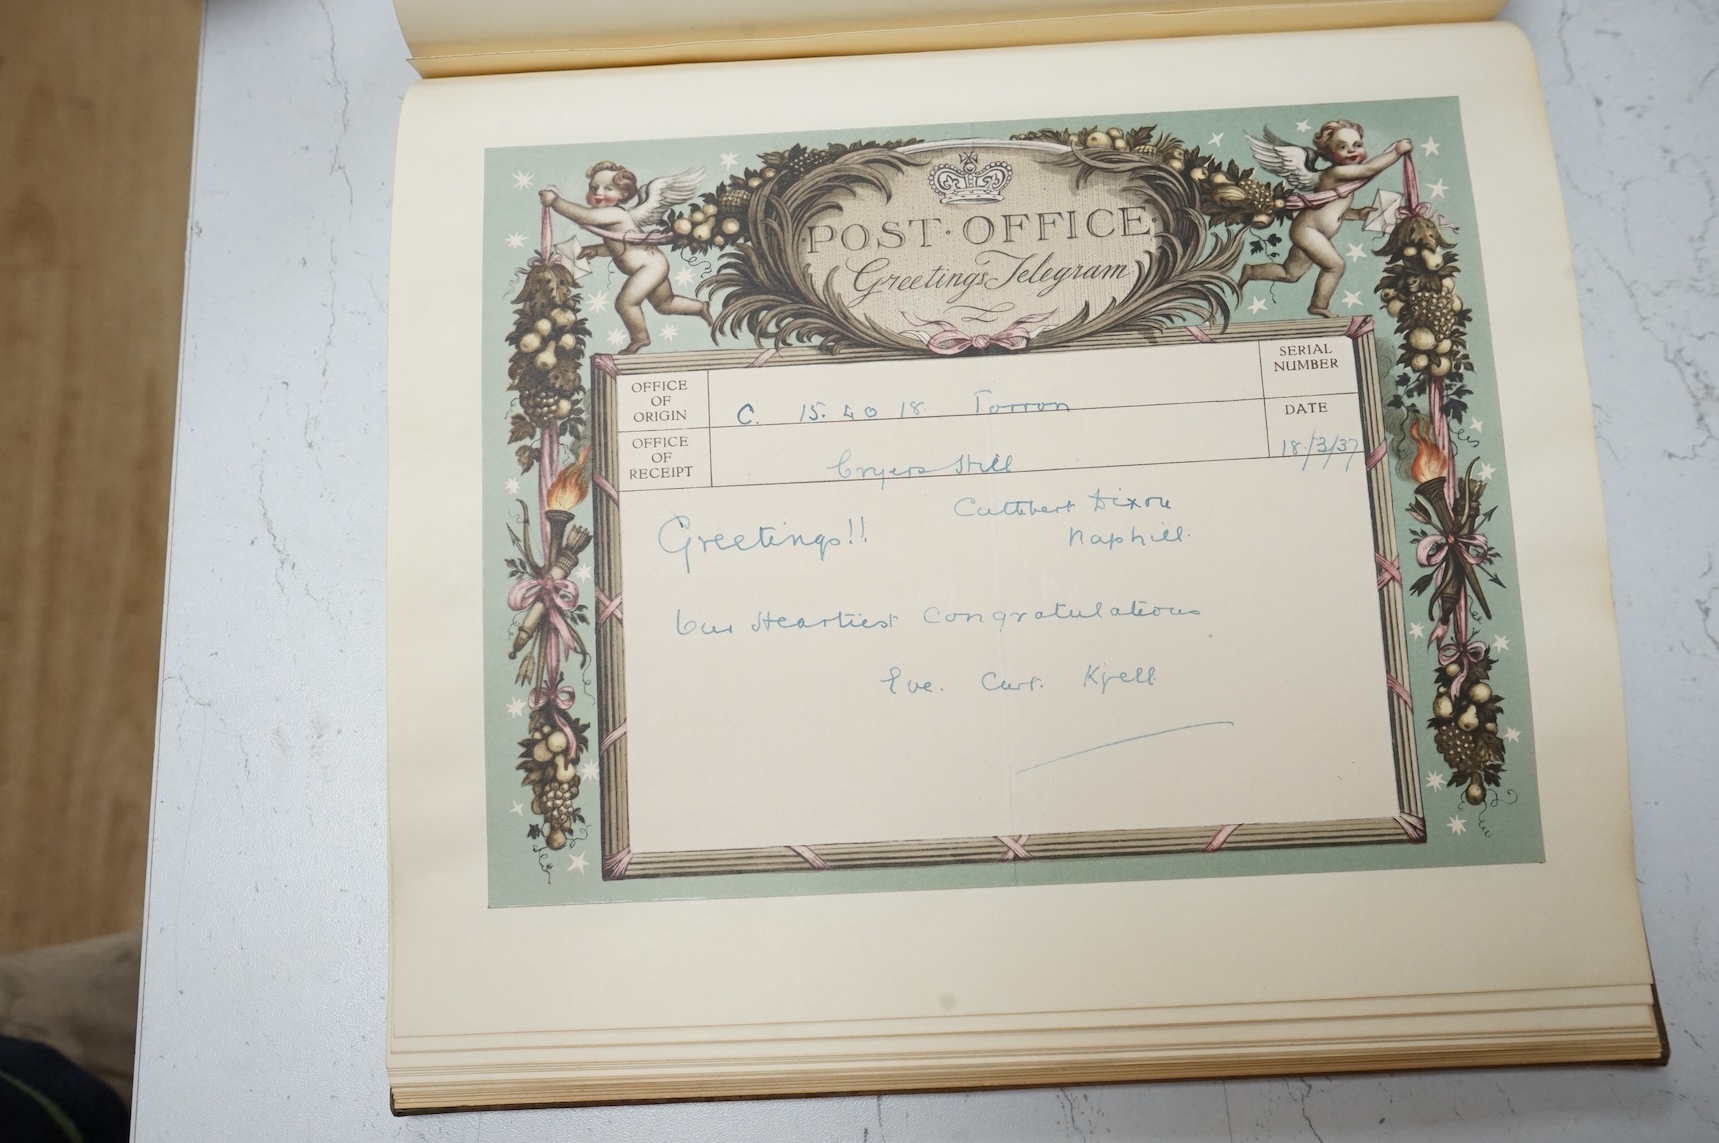 POST·OFFICE
Greetings Telegram
OFFICE
OF
ORIGIN
C. 15. 40 18
SERIAL
NUMBER
OFFICE
OF
RECEIPT
Cryers Hill
DATE
18/3/37
Cuthbert Dixon
Naphill.
Greetings!!
Our Heartiest Congratulations
Eve. Curt. Kjell